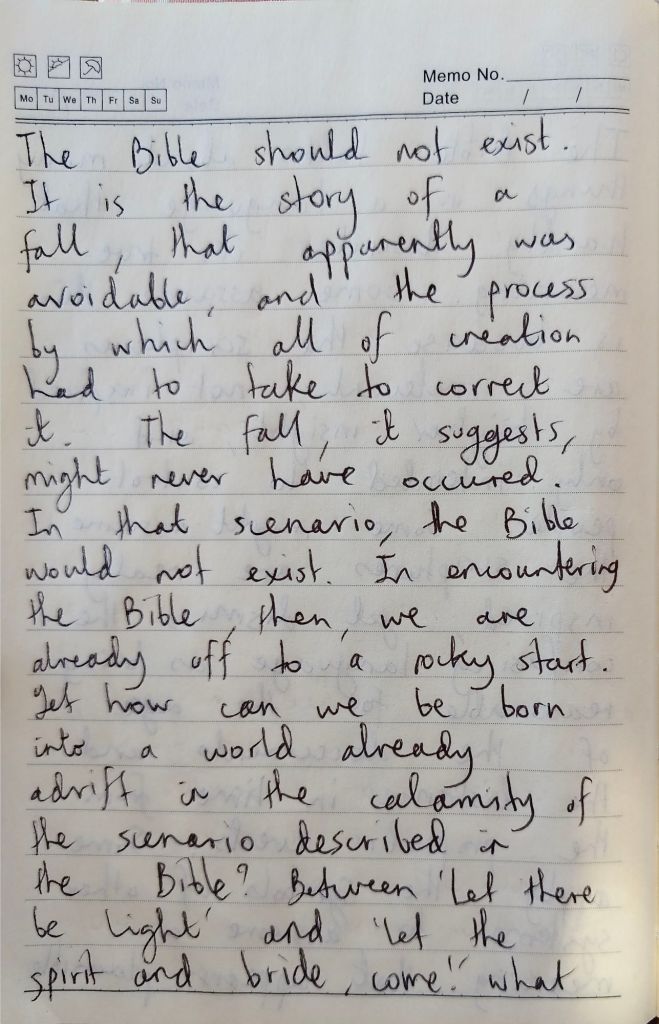 Memo No.
Mo Tu We Th Fr Sa Su
Date / /
The Bible should not exist.
It is the story of a
fall, that apparently was
avoidable, and the process
by which all of creation
had to take to correct
it. The fall, it suggests,
might never have occured.
In that scenario, the Bible
would not exist. In encountering
the Bible, then, we are
already off to a rocky start.
Yet how can we be born
into a world already
adrift in the calamity of
the scenario described in
the Bible? Between 'Let there
be light' and 'let the
spirit and bride, come!' what